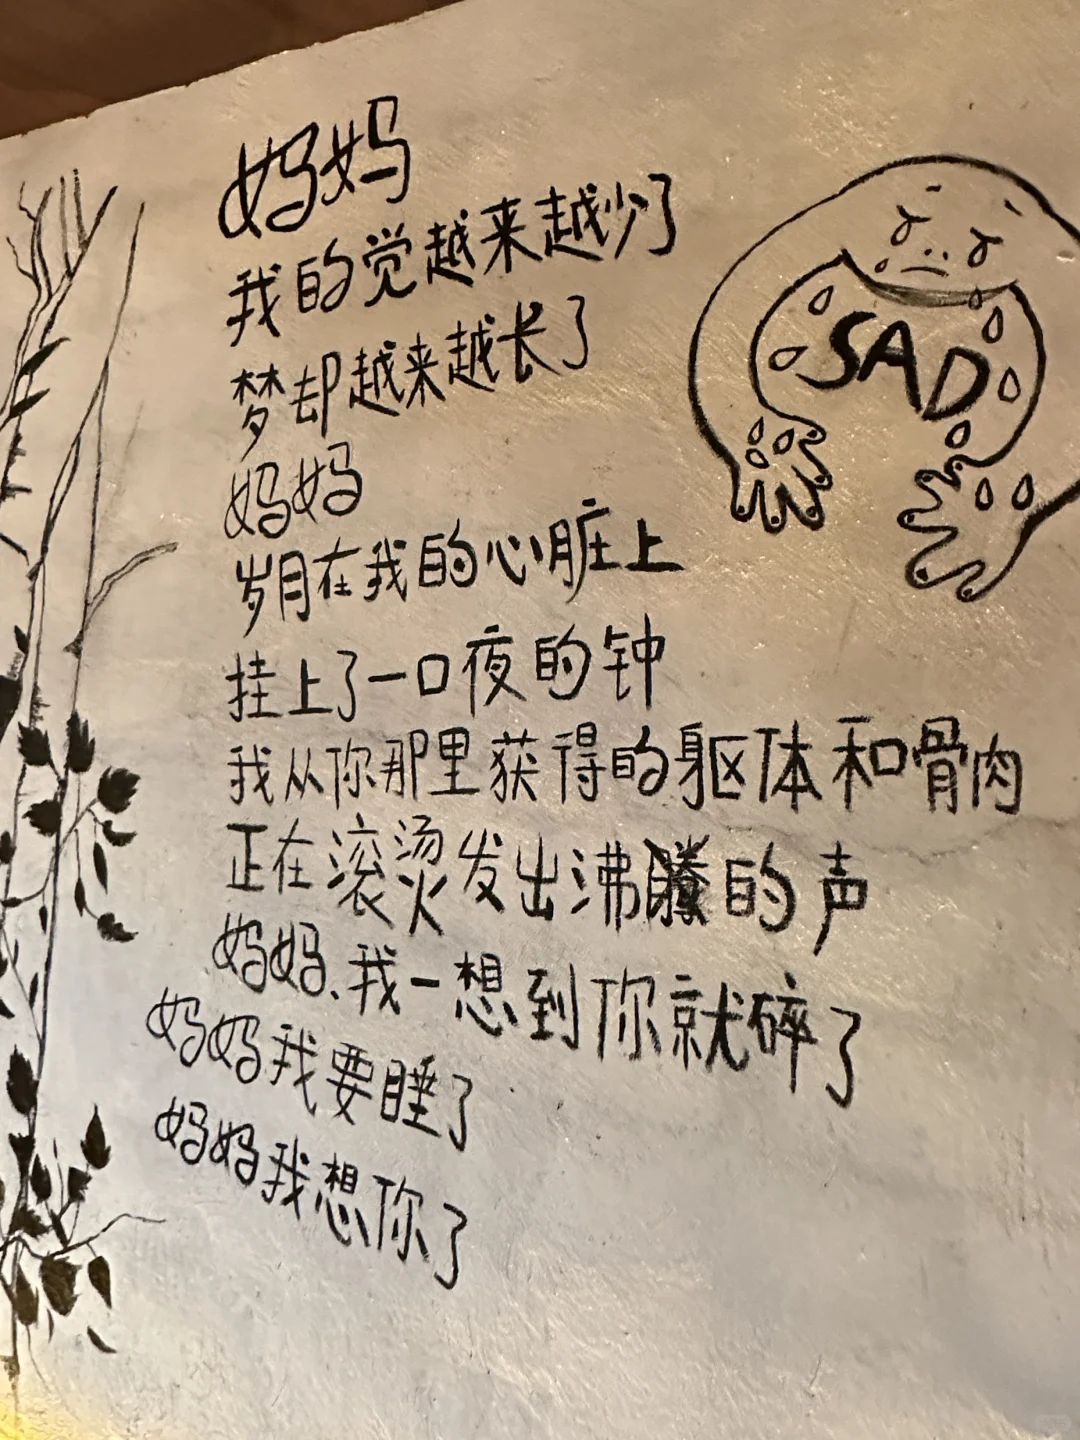 妈妈
我的觉越来越少了
梦却越来越长了
妈妈
岁月在我的心脏上
挂上了一口夜的钟
我从你那里获得的躯体和骨肉
正在滚烫发出沸腾的声
妈妈、我一想到你就碎了
妈妈我要睡了
妈妈我想你了
SAD